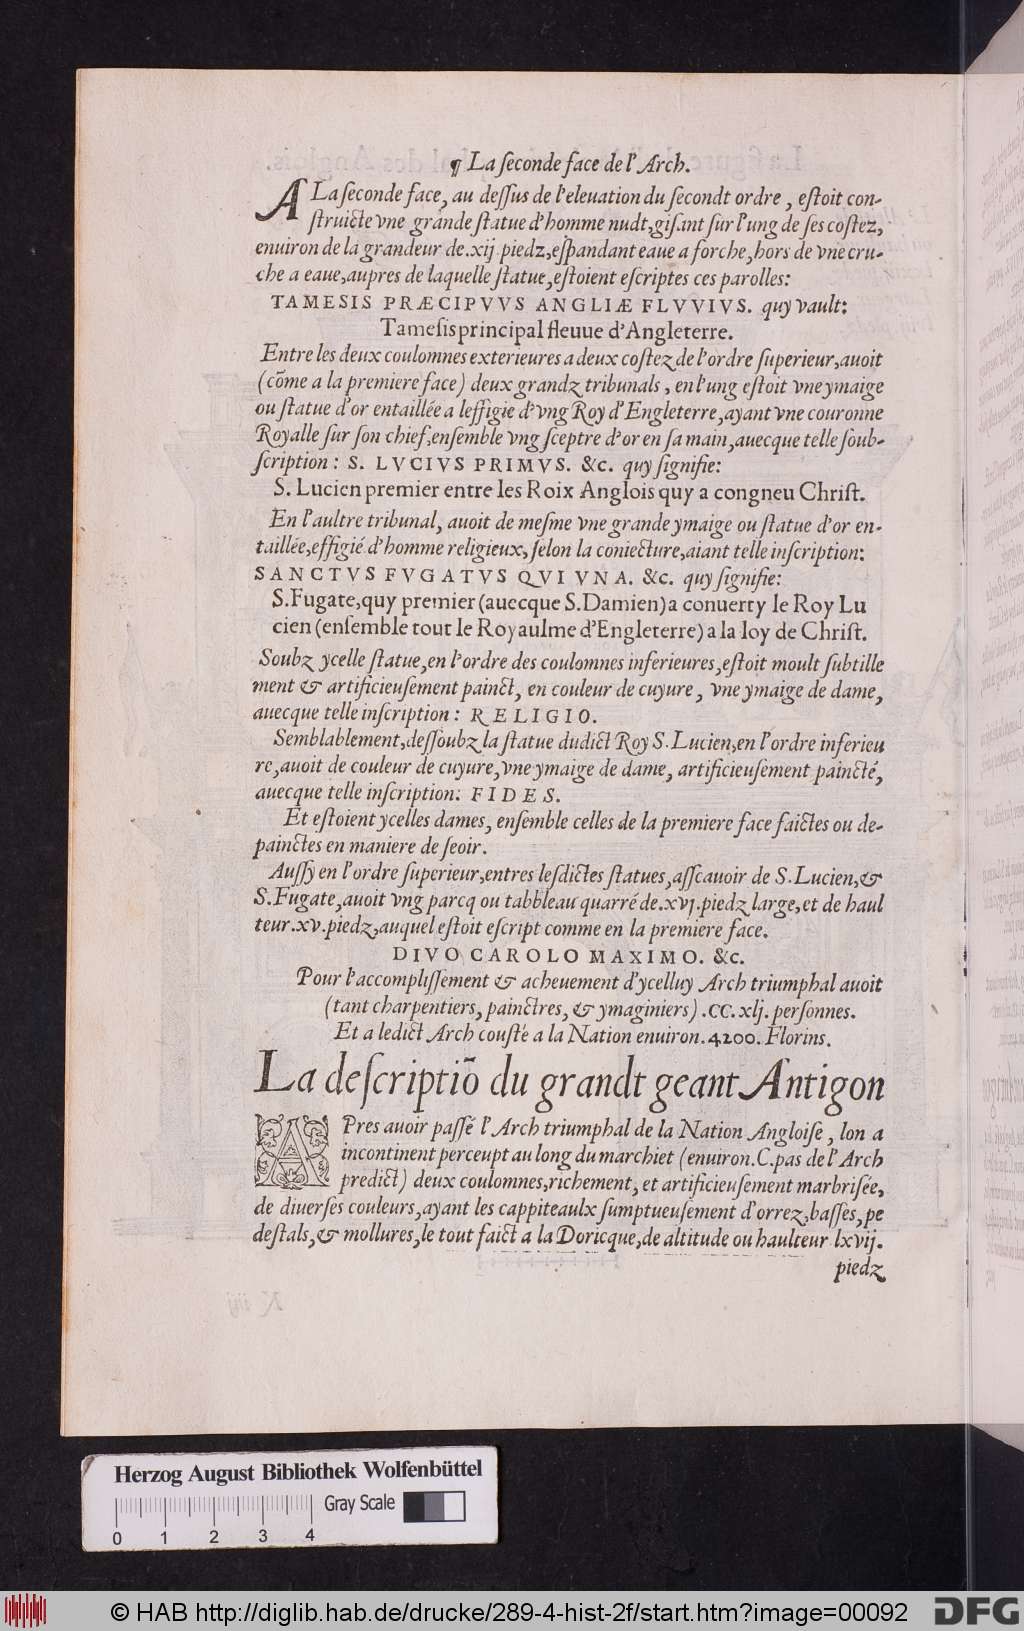 ¶ La ſeconde face de l'Arch.
A La ſeconde face, au deſſus de l'eleuation du ſecondt ordre, eſtoit con-
ſtruicte vne grande ſtatue d'homme nudt, giſant ſur l'ung de ſes coſtez,
enuiron de la grandeur de .xij. piedz, eſpandant eaue a forche, hors de vne cru-
che a eaue, aupres de laquelle ſtatue, eſtoient eſcriptes ces parolles:
TAMESIS PRÆCIPVVS ANGLIÆ FLVVIVS. quy vault:
Tameſis principal fleuue d'Angleterre.
Entre les deux coulomnes exterieures a deux coſtez de l'ordre ſuperieur, auoit
(cõme a la premiere face) deux grandz tribunals, en l'ung eſtoit vne ymaige
ou ſtatue d'or entaillée a leffigie d'vng Roy d'Engleterre, ayant vne couronne
Royalle ſur ſon chief, enſemble vng ſceptre d'or en ſa main, auecque telle ſoub-
ſcription: S. LVCIVS PRIMVS. &c. quy ſignifie:
S. Lucien premier entre les Roix Anglois quy a congneu Chriſt.
En l'aultre tribunal, auoit de meſme vne grande ymaige ou ſtatue d'or en-
taillée, effigié d'homme religieux, ſelon la coniecture, aiant telle inſcription:
SANCTVS FVGATVS QVI VNA. &c. quy ſignifie:
S. Fugate, quy premier (auecque S. Damien) a conuerty le Roy Lu
cien (enſemble tout le Royaulme d'Engleterre) a la loy de Chriſt.
Soubz ycelle ſtatue, en l'ordre des coulomnes inferieures, eſtoit moult ſubtille
ment & artificieuſement painct, en couleur de cuyure, vne ymaige de dame,
auecque telle inſcription: RELIGIO.
Semblablement, deſſoubz la ſtatue dudict Roy S. Lucien, en l'ordre inferieu
re, auoit de couleur de cuyure, vne ymaige de dame, artificieuſement paincté,
auecque telle inſcription: FIDES.
Et eſtoient ycelles dames, enſemble celles de la premiere face faictes ou de-
painctes en maniere de ſeoir.
Auſſy en l'ordre ſuperieur, entres leſdictes ſtatues, aſſcauoir de S. Lucien, &
S. Fugate, auoit vng parcq ou tabbleau quarré de .xvj. piedz large, et de haul
teur .xv. piedz, auquel eſtoit eſcript comme en la premiere face.
DIVO CAROLO MAXIMO. &c.
Pour l'accompliſſement & acheuement d'ycelluy Arch triumphal auoit
(tant charpentiers, painctres, & ymaginiers) .CC. xlj. perſonnes.
Et a ledict Arch couſté a la Nation enuiron. 4200. Florins.
La deſcriptiõ du grandt geant Antigon
APres auoir paſſé l'Arch triumphal de la Nation Angloiſe, lon a
incontinent perceupt au long du marchiet (enuiron .C. pas de l'Arch
predict) deux coulomnes, richement, et artificieuſement marbriſée,
de diuerſes couleurs, ayant les cappiteaulx ſumptueuſement d'orrez, baſſes, pe
deſtals, & mollures, le tout faict a la Doricque, de altitude ou haulteur lxvij.
piedz
Herzog August Bibliothek Wolfenbüttel
Gray Scale
0 1 2 3 4
© HAB http://diglib.hab.de/drucke/289-4-hist-2f/start.htm?image=00092
DFG